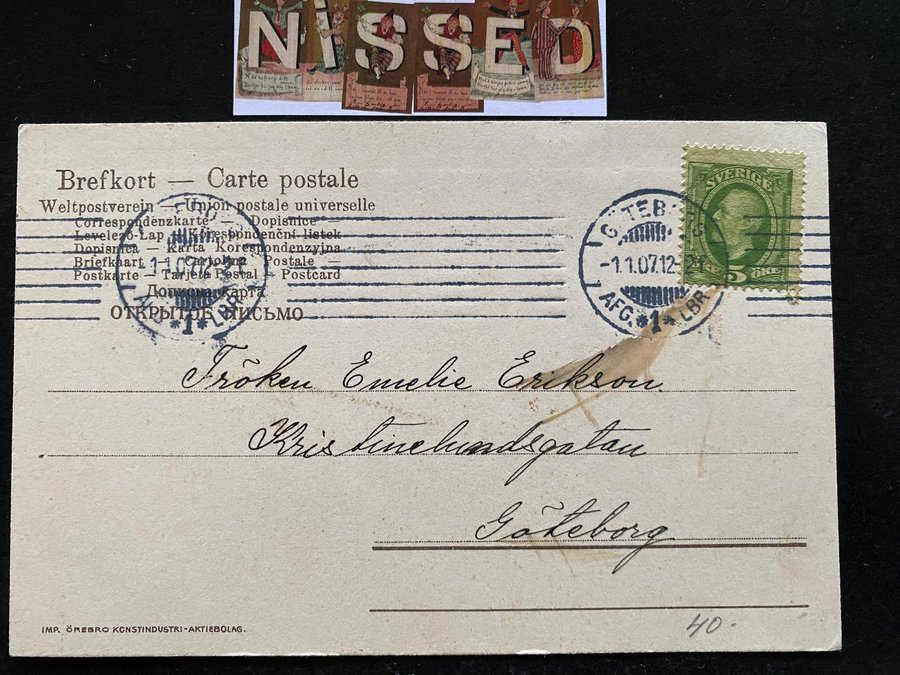 NISSED
Brefkort — Carte postale
Weltpostverein — Union postale universelle
Correspondenzkarte — Dopisnice —
Levelező-Lap — Korespondenční listek
Dopisnica — Karta Korespondenzyjna
Briefkaart — Cartolina Postale —
Postkarte — Tarjeta Postal — Postcard
Допкова карта
ОТКРЫТОЕ ПИСЬМО
GÖTEBORG
-1.1.07.12-2
AFG. *1* LBR
GÖTEBORG
-1.1.07.12-2
AFG. *1* LBR
SVERIGE
5 ÖRE
Fröken Emelie Erikson
Kristinelundsgatan
Göteborg
IMP. ÖREBRO KONSTINDUSTRI-AKTIEBOLAG.
40-